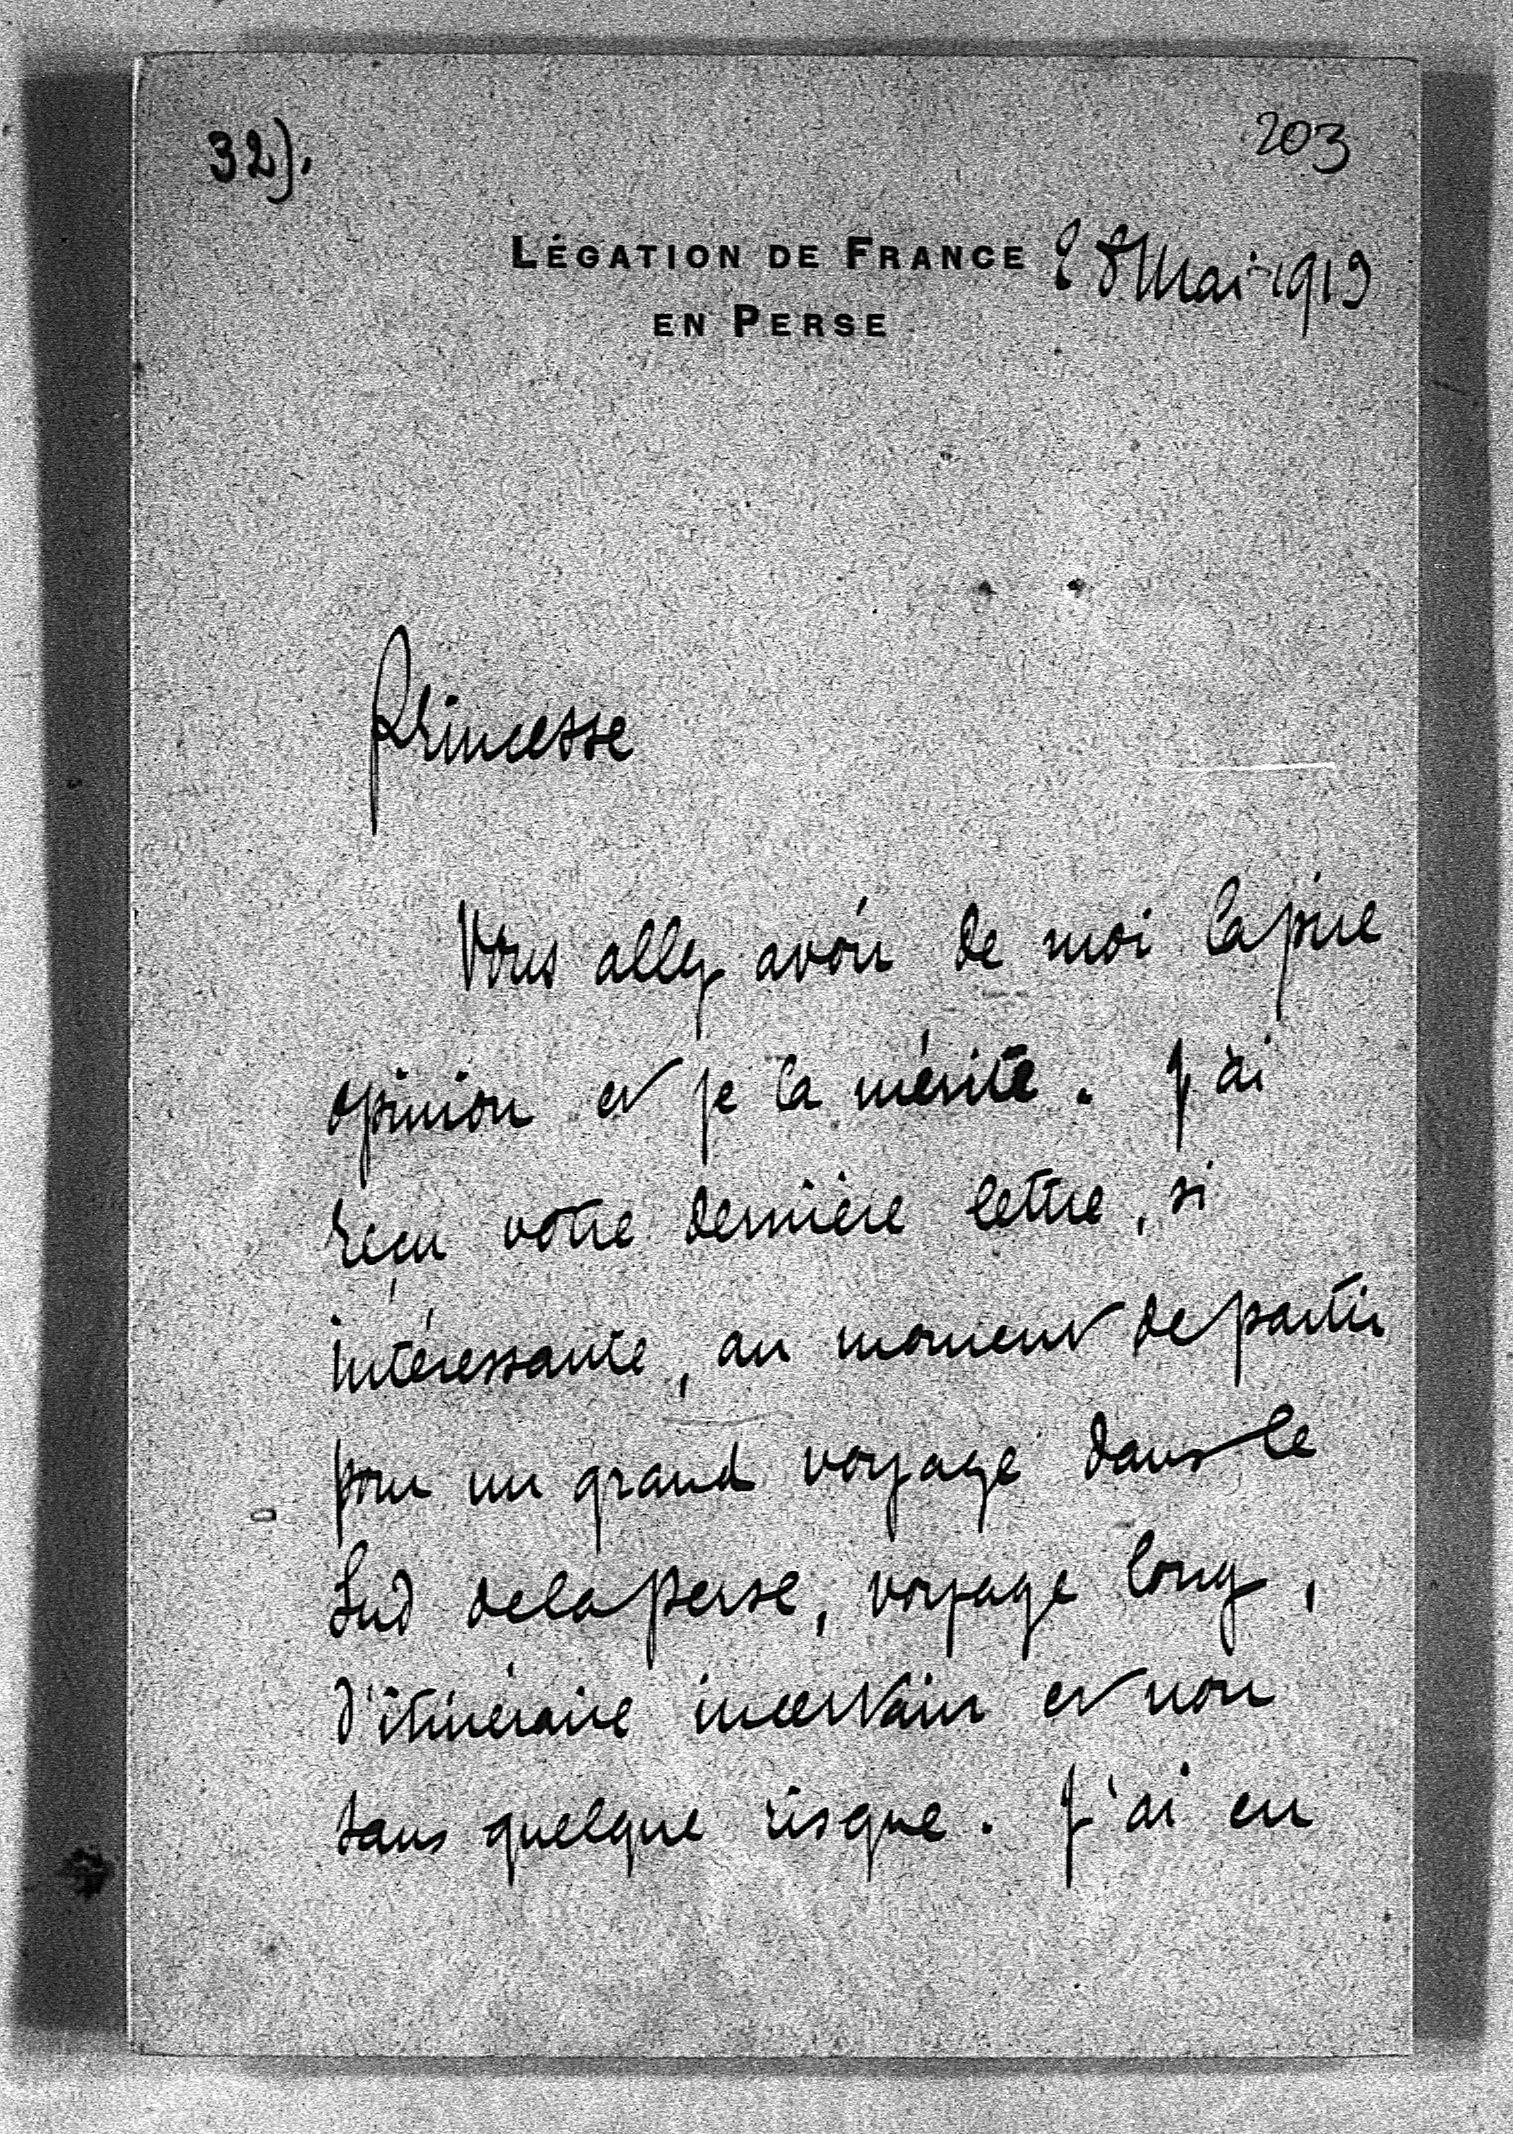 32).
203
LÉGATION DE FRANCE
EN PERSE
28 Mai 1919
Princesse
Vous allez avoir de moi la pire
opinion et je la mérite. J'ai
reçu votre dernière lettre, si
intéressante, au moment de partir
pour un grand voyage dans le
Sud de la Perse, voyage long,
d'itinéraire incertain et non
sans quelque risque. J'ai eu